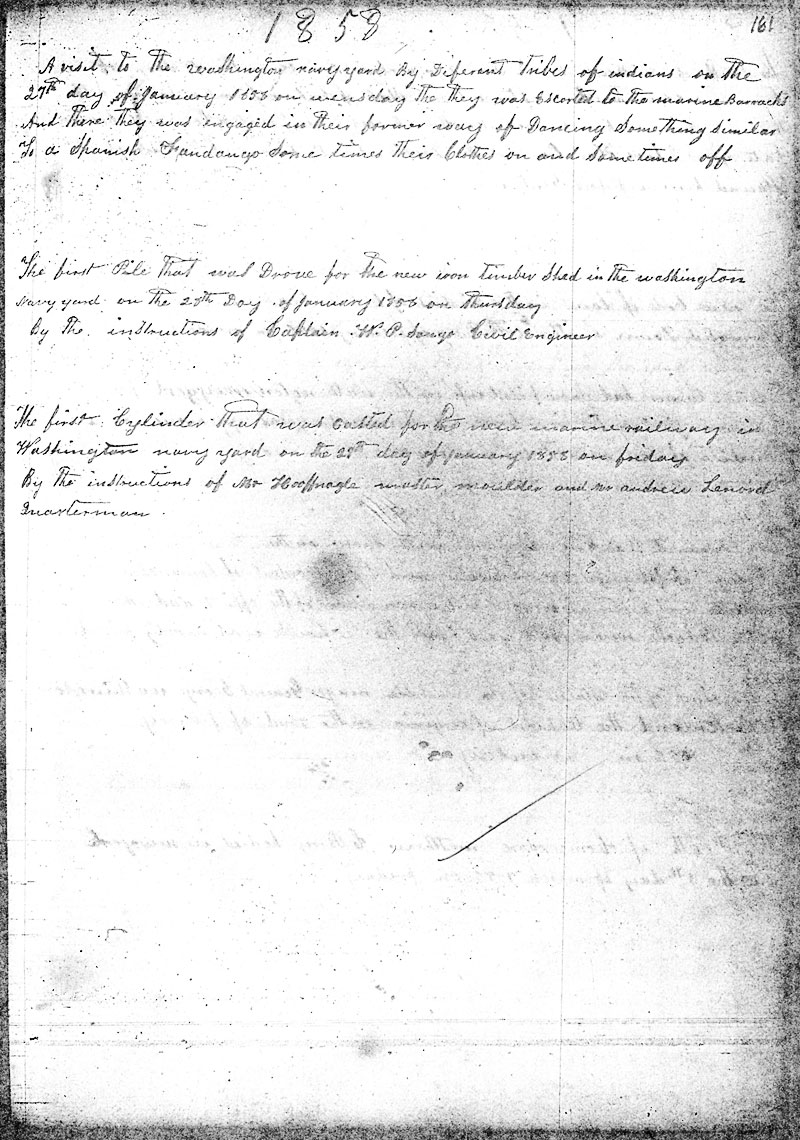 1858
181
A visit to the washington navy yard By Diferent Tribes of indians on the
27th day of January 1858 on wensday the they was Escorted to the marine Barracks
And there they was engaged in their former way of Dancing Something similar
To a Spanish Fandango Some times their Clothes on and Sometimes off
The first Pile that was Drove for the new iron timber Shed in the washington
navy yard on the 28th Day of January 1858 on thursday
By the instructions of Captain W. P. Civil Engineer
The first Cylinder that was casted for the new marine railway in
Washington navy yard on the 29th day of January 1858 on friday
By the instructions of Mr Hooffnagle master moulder and mr andrew Lenord
Quarterman